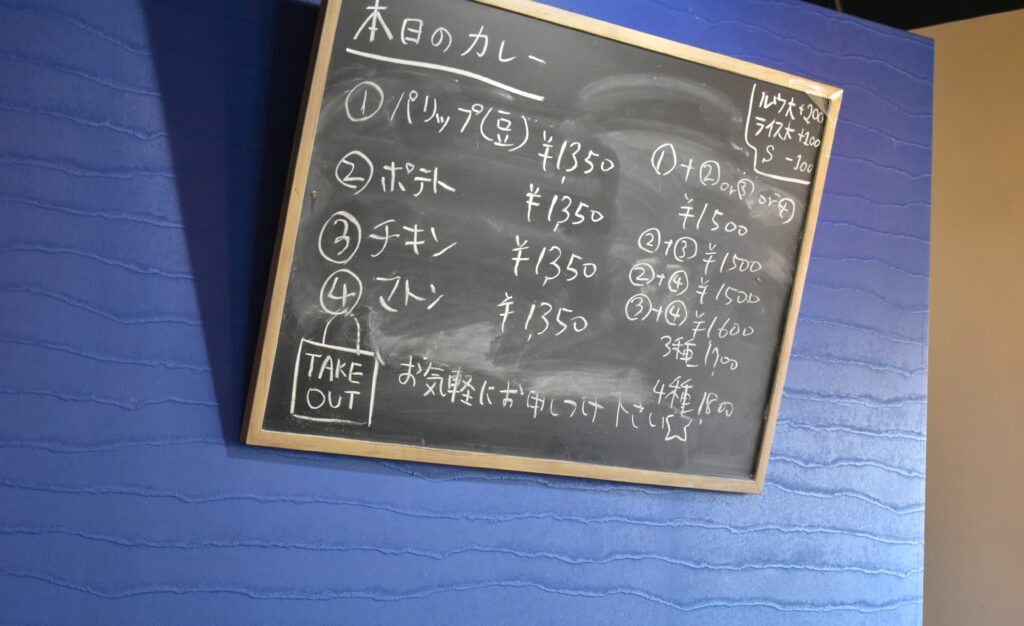 本日のカレー
① パリップ(豆) ¥1,350
② ポテト ¥1,350
③ チキン ¥1,350
④ マトン ¥1,350
TAKE
OUT
お気軽にお申しつけ下さい☆
ルウ大+200
ライス大+100
S -100
①+②or③or④
¥1500
②+③ ¥1500
②+④ ¥1500
③+④ ¥1600
3種 1,700
4種 1,800